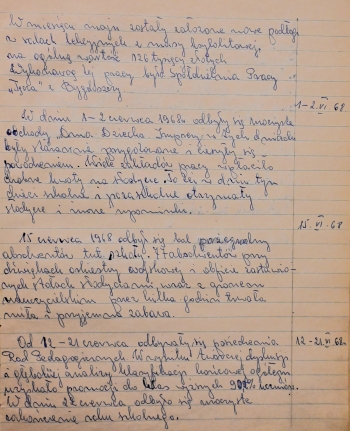 W miesiącu maju zostały założone nowe podłogi
w salach lekcyjnych z masy ksylolitowej,
na ogólną wartość 126 tysięcy złotych.
Wykonawcą tej pracy była Spółdzielnia Pracy
w Bydgoszczy
1-2. VI 68
W dniu 1-2 czerwca 1968r odbyły się uroczyste
obchody „Dnia Dziecka". Imprezy w tych dniach
były starannie przygotowane i cieszyły się
powodzeniem. Wiele zakładów pracy wpłaciło
kwoty na słodycze. To też w dniu tym
dzieci szkolne i pozaszkolne otrzymały
słodycze i inne upominki.
15. VI 68
15 czerwca 1968 odbył się bal pożegnalny
absolwentów tut. szkoły. 77 absolwentów przy
dźwiękach orkiestry wojskowej i obficie zastawio-
nych stołach słodyczami, wraz z gronem
nauczycielskim przez kilka godzin trwała
miła i przyjemna zabawa.
12-21. VI 68r.
Od 12-21 czerwca odbywały się posiedzenia
Rad Pedagogicznych. W wyniku twórczej dyskusji
i głębokiej analizy klasyfikacji końcowej ogółem
uzyskało promocji do klas wyższych 90% uczniów.
W dniu 22 czerwca odbyło się uroczyste
zakończenie roku szkolnego.